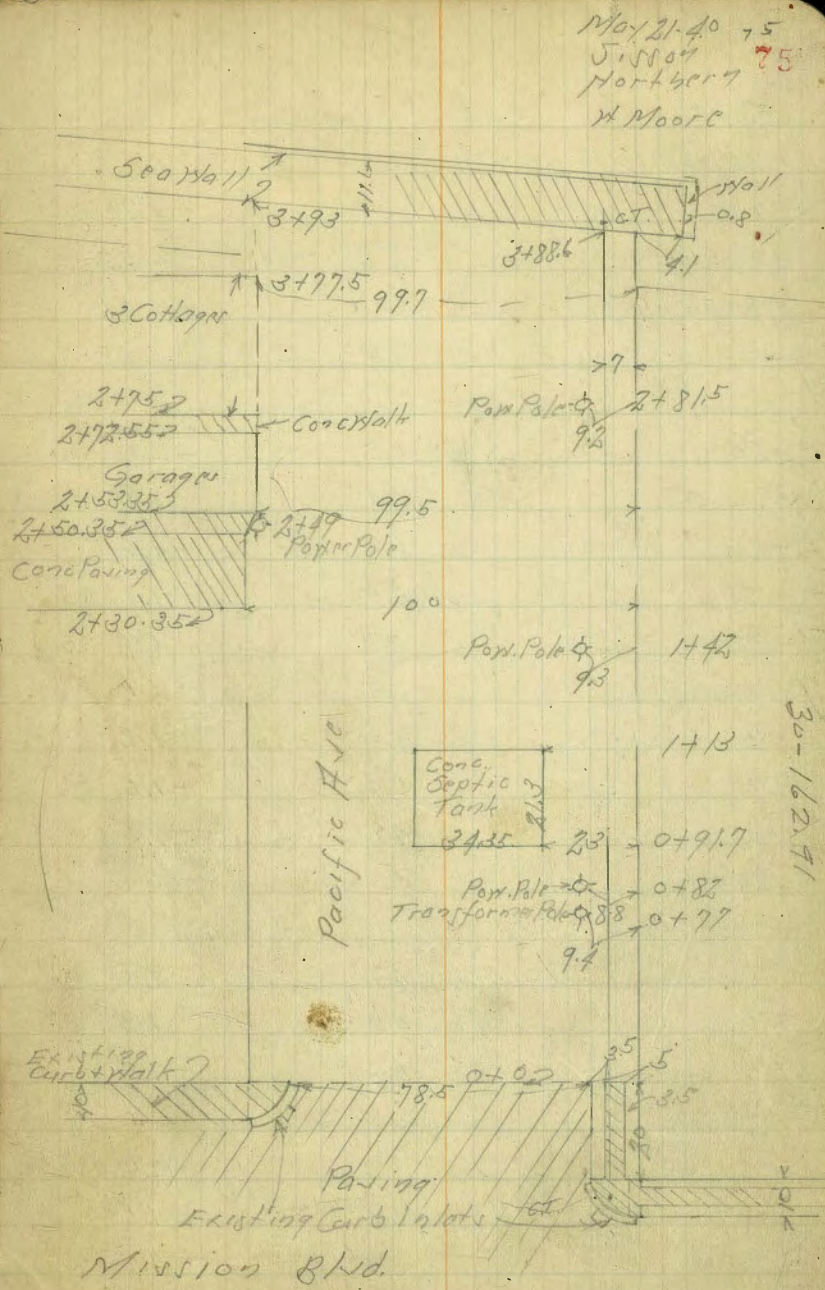 May 21-40 75
75
Sisson
Northern
W Moore
Sea Wall
11.6
Wall
3+93
C.T.
0.8
3+88.6
4.1
3+77.5
99.7
3 Cottages
7
2+75
Pow. Pole
2+81.5
2+72.55
Conc Walk
9.2
Garages
2+53.35
99.5
2+50.35
2+49
Power Pole
Conc Paving
100
2+30.35
Pow. Pole
1+42
9.3
30-162.91
1+13
Pacific Ave
Conc.
Septic
Tank
21.3
34.35
23
0+91.7
Pow. Pole
0+82
Transformer Pole
8.8
0+77
9.4
Existing
Curb + Walk
3.5
5
0+0
78.5
3.5
40
20
Paving
10
Existing Curb Inlets
Mission Blvd.